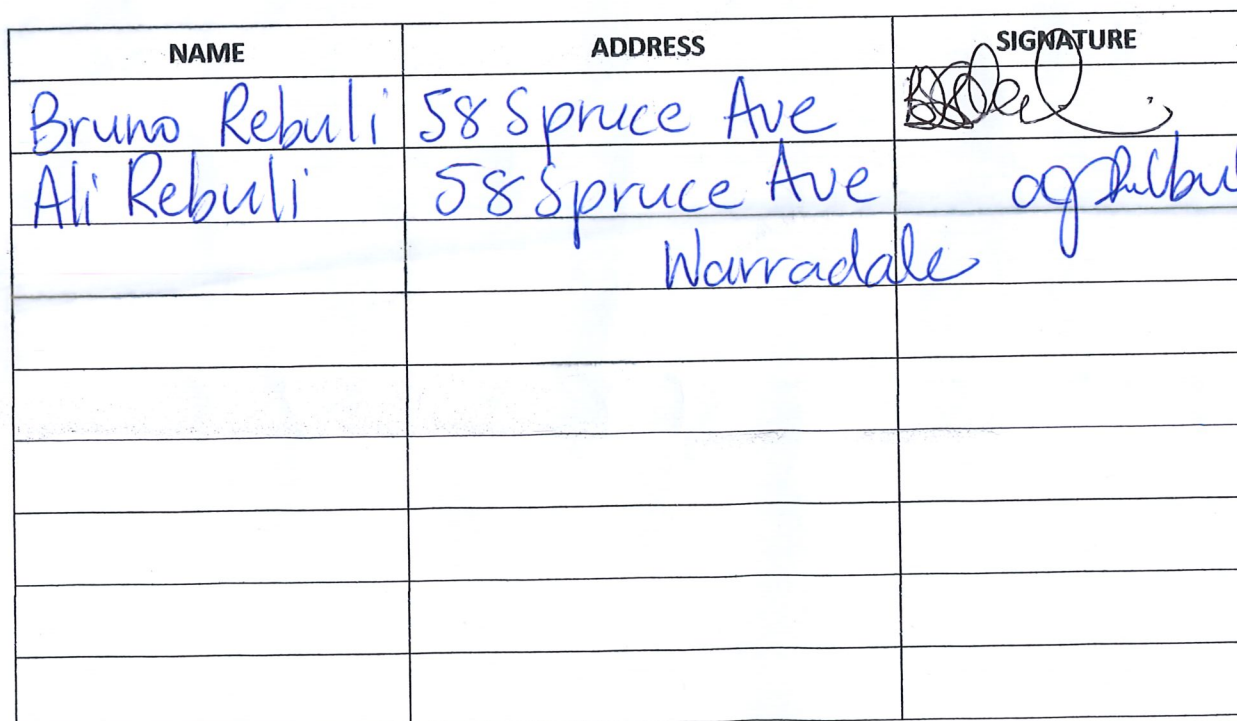 NAME ADDRESS SIGNATURE
Bruno Rebuli 58 Spruce Ave
Ali Rebuli 58 Spruce Ave
Warradale